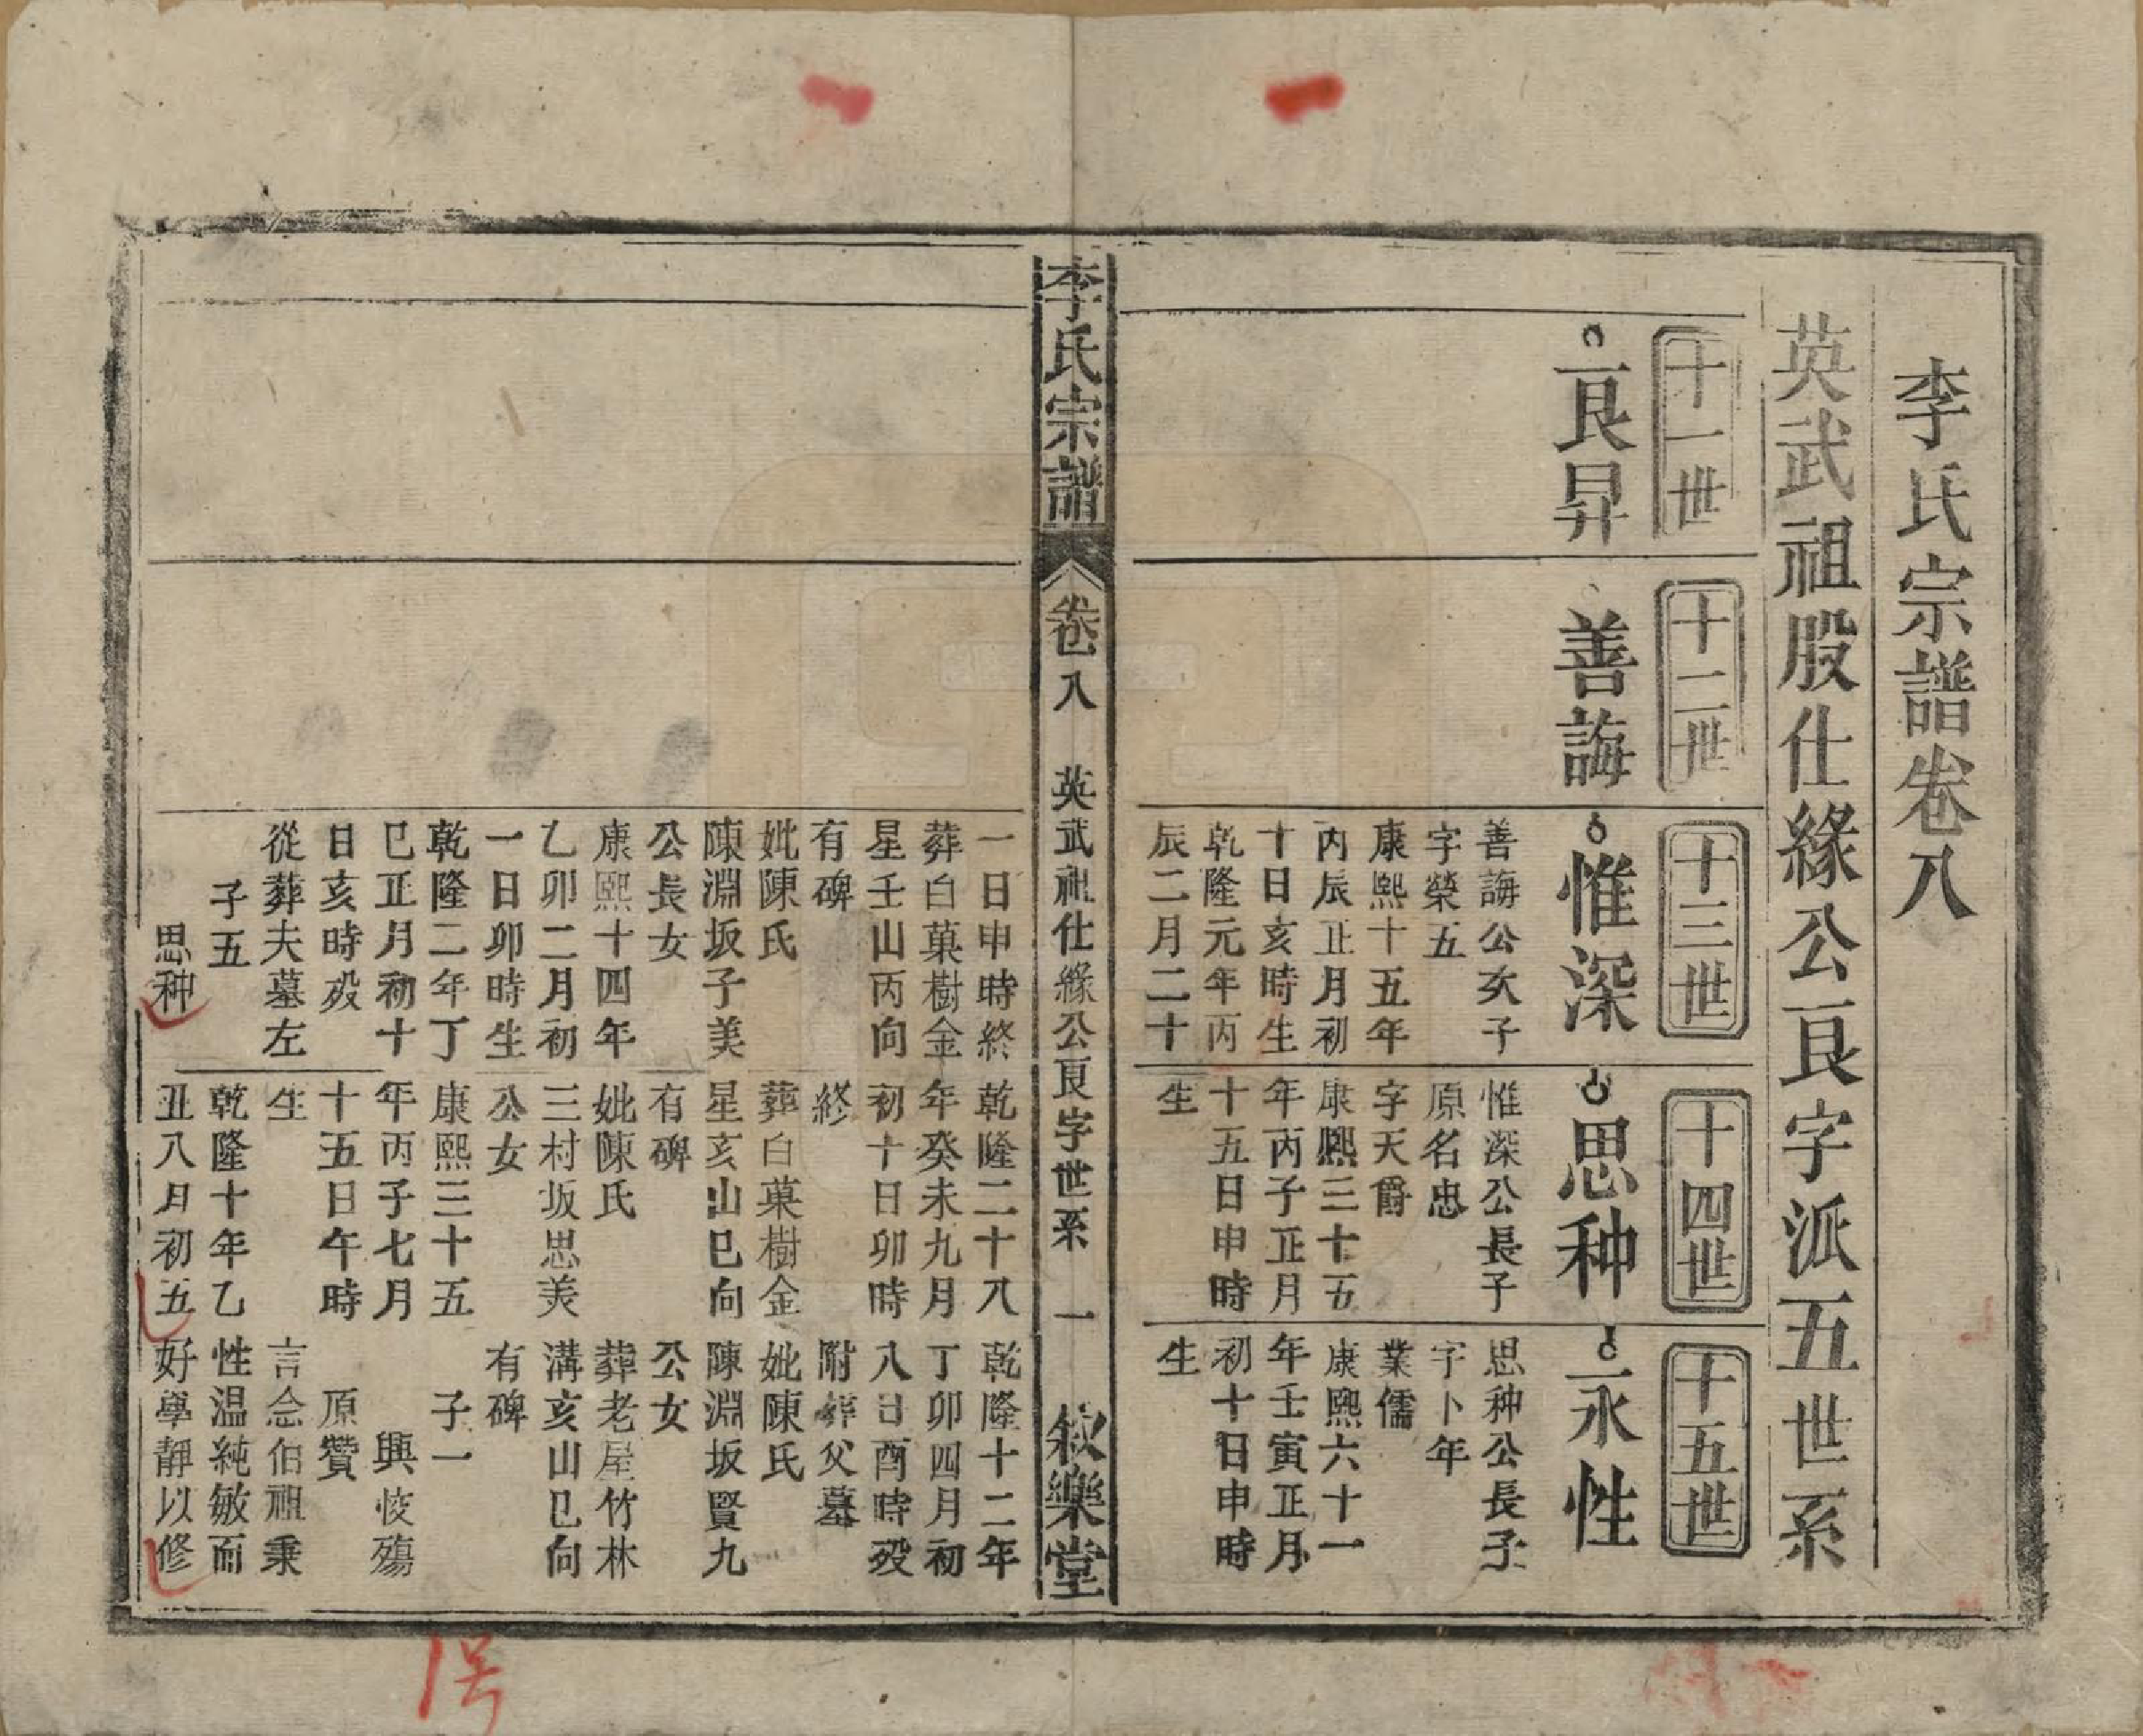 李氏宗譜卷八
英武祖股仕緣公良字派五世系
十一世
良昇
十二世
善誨
十三世
惟深
善誨公次子
字榮五
康熙十五年
丙辰正月初
十日亥時生
乾隆元年丙
辰二月二十
十四世
思种
惟深公長子
原名忠
字天爵
康熙三十五
年丙子正月
十五日申時
生
十五世
永性
思种公長子
字卜年
業儒
康熙六十一
年壬寅正月
初十日申時
生
李氏宗譜
卷八
英武祖仕緣公良字世系
一
敘樂堂
一日申時終
葬白菓樹金
星壬山丙向
有碑
妣陳氏
陳淵坂子美
公長女
康熙十四年
乙卯二月初
一日卯時生
乾隆二年丁
巳正月初十
日亥時歿
從葬夫墓左
子五
思种
乾隆二十八
年癸未九月
初十日卯時
終
葬白菓樹金
星亥山巳向
有碑
妣陳氏
三村坂思美
公女
康熙三十五
年丙子七月
十五日午時
生
乾隆十年乙
丑八月初五
乾隆十二年
丁卯四月初
八日酉時歿
附葬父墓
妣陳氏
陳淵坂賢九
公女
葬老屋竹林
溝亥山巳向
有碑
子一
興悛殤
原贊
言念伯祖秉
性温純敏而
好學靜以修
1号